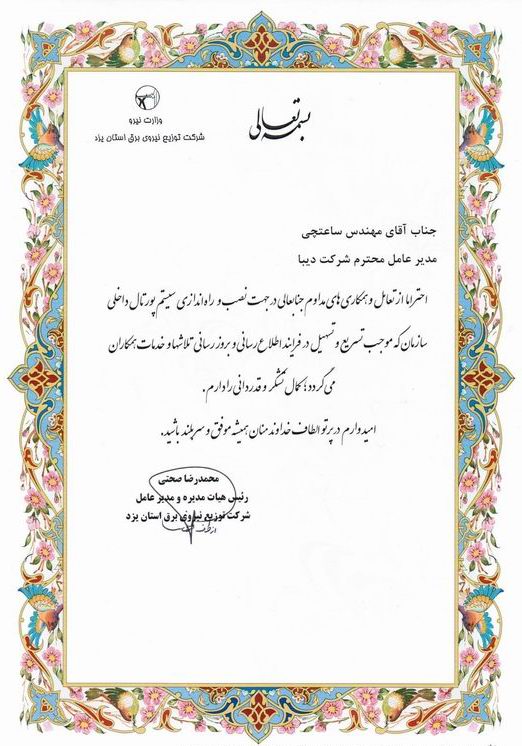 بسمه تعالی
وزارت نیرو
شرکت توزیع نیروی برق استان یزد
جناب آقای مهندس ساعتچی
مدیر عامل محترم شرکت دیبا
احتراما از تعامل و همکاری های مداوم جنابعالی در جهت نصب و راه اندازی سیستم پورتال داخلی
سازمان که موجب تسریع و تسهیل در فرایند اطلاع رسانی و بروز رسانی تلاشها و خدمات همکاران
می گردد؛ کمال تشکر و قدردانی را دارم.
امیدوارم در پرتو الطاف خداوند منان همیشه موفق و سربلند باشید.
محمدرضا صحتی
رئیس هیات مدیره و مدیر عامل
شرکت توزیع نیروی برق استان یزد
از طرف